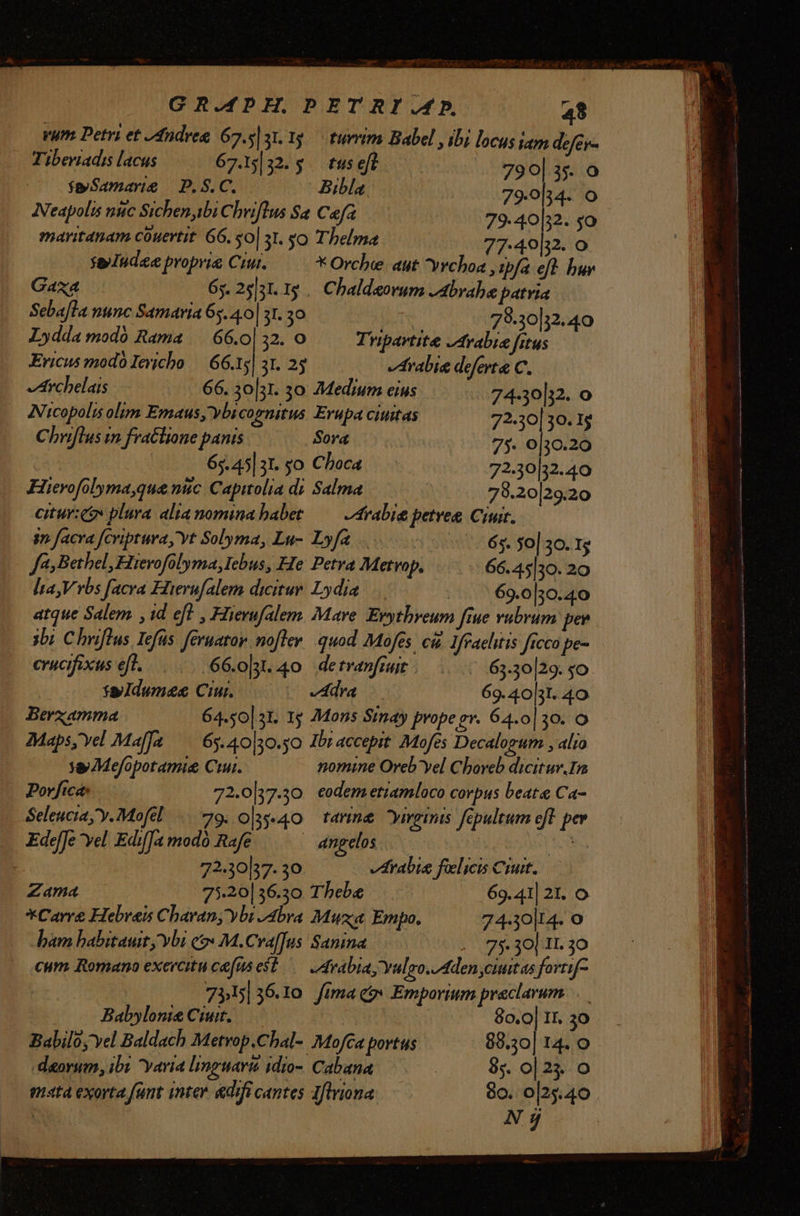 GRAPH. PETRI AP. 48
rum Petri et Andreæ 67.5|31. 15
Tiberiadis lacus 67.15|32. 5
Samariæ P.S.C.
Neapolis nūc Sichen, ibi Christus Sa
maritanam cōuertit 66. 50|31. 50
Iudææ propriæ Ciui.
Gaza 65. 25|31. 15
Sebasta nunc Samaria 65. 40|31. 30
Lydda modò Rama 66.0|32. 0
Ericus modò Iericho 66.15|31. 25
Archelais 66. 30|31. 30
Nicopolis olim Emaus, vbi cognitus
Christus in fractione panis
65. 45|31. 50
Hierosolyma, quæ nūc Capitolia di
citur: & plura alia nomina habet
in sacra scriptura, vt Solyma, Lu-
sa, Bethel, Hierosolyma, Iebus, He
lia, Vrbs sacra Hierusalem dicitur
atque Salem, id est, Hierusalem
ibi Christus Iesus seruator noster
crucifixus est. 66.0|31. 40
Idumææ Ciui.
Berzamma 64.50|31. 15
Maps, vel Massa 65.40|30.50
Mesopotamiæ Ciui.
Porsica 72.0|37.30
Seleucia, v. Mosel 79. 0|35.40
Edesse vel Edissa modò Rase
72.30|37. 30
Zama 75.20|36.30
*Carræ Hebræis Charan, vbi Abra
ham habitauit, vbi & M. Crassus
cum Romano exercitu cæsus est
73.15|36.10
Babyloniæ Ciuit.
Babilō, vel Baldach Metrop. Chal-
dæorum, ibi varia linguarū idio-
mata exorta sunt inter ædificantes
turrim Babel, ibi locus iam deser-
tus est 79 0|35. 0
Bibla 79.0|34. 0
Casa 79. 40|32. 50
Thelma 77.40|32. 0
*Orche aut vrchoa, ipsa est hur
Chaldæorum Abrahæ patria
78.30|32.40
Tripartitæ Arabiæ situs
Arabiæ desertæ C.
Medium eius 74.30|32. 0
Erupa ciuitas 72.30|30. 15
Sora 75. 0|30.20
Choca 72.30|32.40
Salma 78.20|29.20
Arabiæ petreæ Ciuit.
Lysa 65. 50|30. 15
Petra Metrop. 66.45|30. 20
Lydia 69.0|30.40
Mare Erythreum siue rubrum per
quod Moses cū Israelitis sicco pe-
de transiuit 63.30|29. 50
Adra 69.40|31. 40
Mons Sinay prope gr. 64.0|30. 0
Ibi accepit Moses Decalogum, alio
nomine Oreb vel Choreb dicitur. In
eodem etiam loco corpus beatæ Ca-
tarinæ virginis sepultum est per
angelos
Arabiæ fœlicis Ciuit.
Thebæ 69.41|21. 0
Muza Empo. 74.30|14. 0
Sanina 75. 30|11. 30
Arabia, vulgo. Aden, ciuitas fortis-
sima & Emporium præclarum
80.0|11. 30
Mosca portus 88.30|14. 0
Cabana 85. 0|23. 0
Istriona 80. 0|25.40
N ij